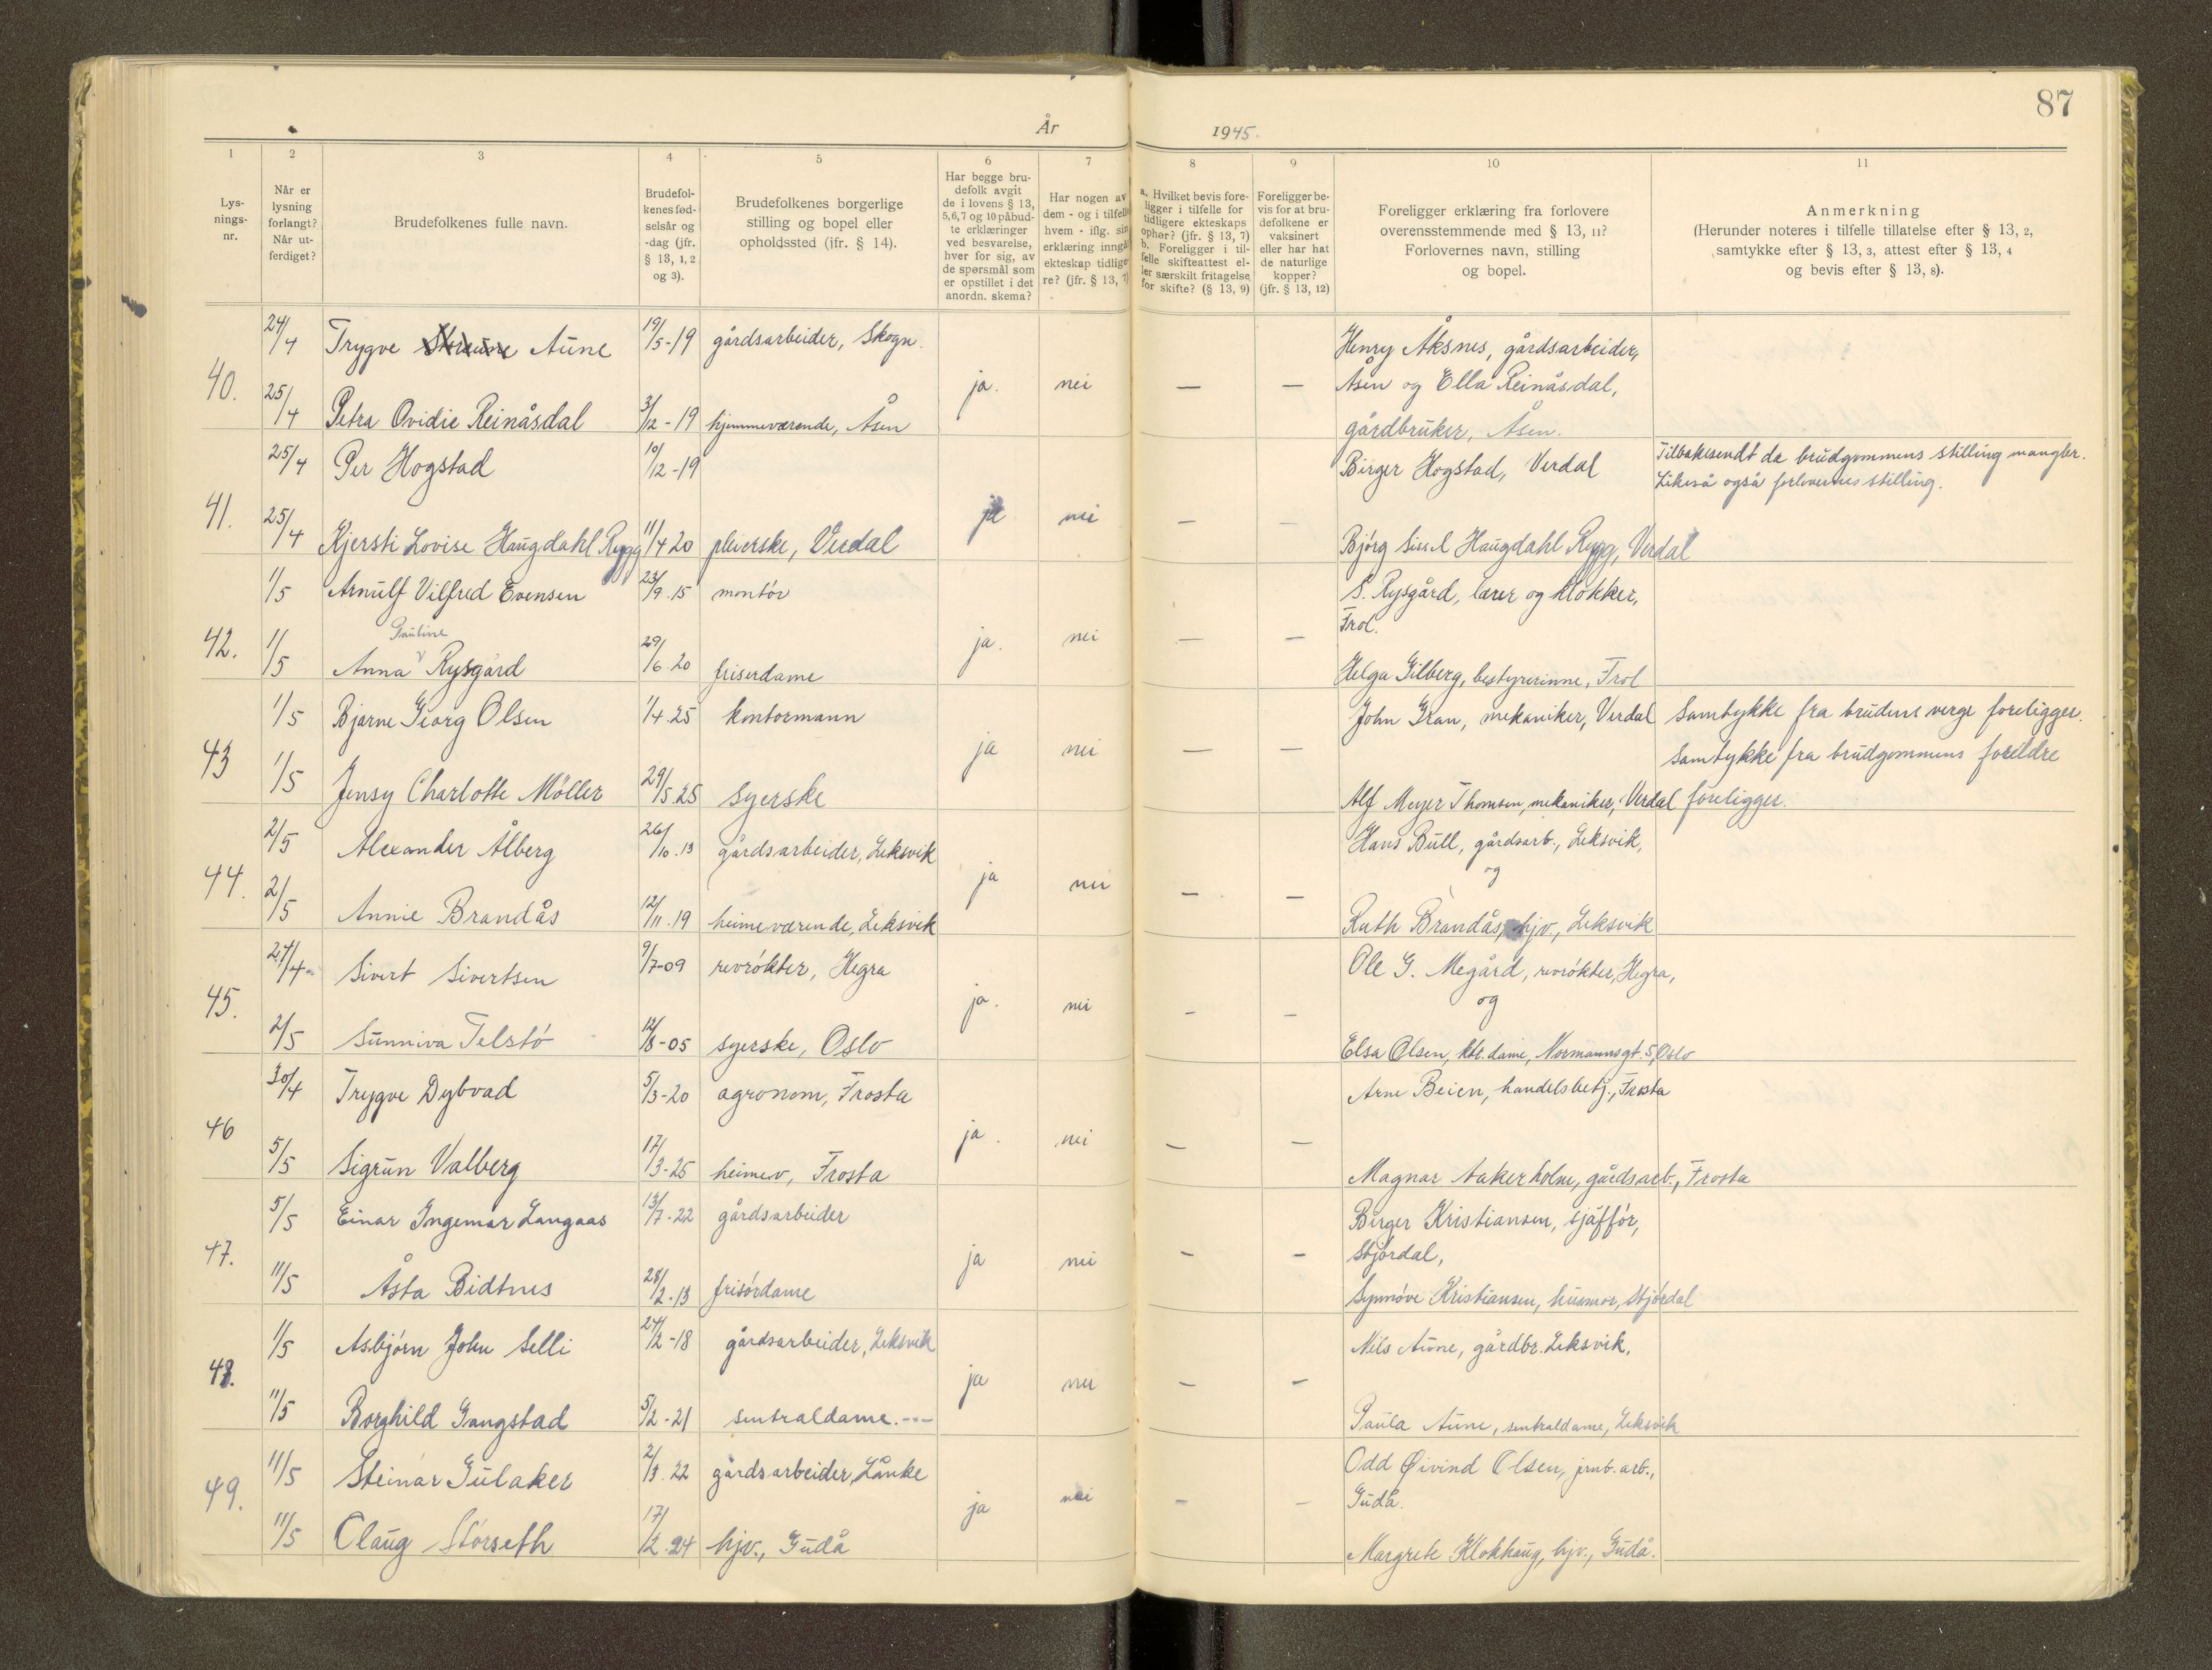 87
År 1945.
1 2 3 4 5 6 7 8 9 10 11
Lys-
nings-
nr.
Når er
lysning
forlangt?
Når ut-
ferdiget?
Brudefolkenes fulle navn.
Brudefol-
kenes fød-
selsår og
-dag (jfr.
§ 13, 1, 2
og 3).
Brudefolkenes borgerlige
stilling og bopel eller
opholdssted (ifr. § 14).
Har begge bru-
defolk avgit
de i lovens § 13,
5, 6, 7 og 10 påbud-
te erklæringer
ved besvarelse,
hver for sig, av
de spørsmål som
er opstillet i det
anordn. skema?
Har nogen av
dem - og i tilfelle
hvem - iflg. sin
erklæring inngåt
ekteskap tidlige-
re? (jfr. § 13, 7)
a. Hvilket bevis fore-
ligger i tilfelle for
tidligere ekteskaps
ophør? (jfr. § 13, 7)
b. Foreligger i til-
felle skifteattest el-
ler særskilt fritagelse
for skifte? (§ 13, 9)
Foreligger be-
vis for at bru-
defolkene er
vaksinert
eller har hat
de naturlige
kopper?
(jfr. § 13, 12)
Foreligger erklæring fra forlovere
overensstemmende med § 13, 11?
Forlovernes navn, stilling
og bopel.
Anmerkning
(Herunder noteres i tilfelle tillatelse efter § 13, 2,
samtykke efter § 13, 3, attest efter § 13, 4
og bevis efter § 13, 8).
24/4 Trygve Aune 19/5-19 gårdsarbeider, Skogn. Henry Åksnes, gårdsarbeider,
40. 25/4 Petra Ovidie Reinåsdal 3/12-19 hjemmeværende, Åsen ja. nei — — Åsen og Ella Reinåsdal,
gårdbruker, Åsen.
25/4 Per Hogstad 10/12-19 Birger Hogstad, Verdal Tilbakesendt da brudgommens stilling mangler.
Likeså også forlovernes stilling.
41. 25/4 Kjersti Lovise Haugdahl Rygg 11/4 20 pleierske, Verdal ja nei — — Bjørg Sissel Haugdahl Rygg, Verdal
1/5 Arnulf Vilfred Evensen 23/9.15 montør S. Rysgård, lærer og klokker,
Frol.
Pauline
42. 1/5 Anna v Rysgård 29/6.20 friserdame ja. nei — — Helga Gilberg, bestyrerinne, Frol
1/5 Bjarne Georg Olsen 1/4.25 kontormann John Gran, mekaniker, Verdal Samtykke fra brudens verge foreligger.
Samtykke fra brudgommens foreldre
43 1/5 Jensy Charlotte Möller 29/5.25 syerske ja nei — — Alf Meyer Thomsen, mekaniker, Verdal foreligger.
2/5 Alexander Ålberg 26/10.13 gårdsarbeider, Leksvik Hans Bull, gårdsarb., Leksvik,
og
44. 2/5 Annie Brandås 12/11.19 heimeværende, Leksvik ja nei — — Ruth Brandås, hjv., Leksvik
27/4- Sivert Sivertsen 9/7-09 revrøkter, Hegra Ole G. Megård, revrøkter, Hegra,
og
45. 2/5 Sunniva Telstø 12/8-05 syerske, Oslo ja. nei — — Elsa Olsen, ktr. dame, Normannsgt. 5, Oslo
30/4 Trygve Dybvad 5/3-20 agronom, Frosta Arne Beien, handelsbetj., Frosta
46 5/5 Sigrun Valberg 17/3-25 heimev, Frosta ja. nei — — Magnar Aakerholm, gårdsarb., Frosta
5/5 Einar Ingemar Langaas 13/7-22 gårdsarbeider Birger Kristiansen, sjåffør,
Stjørdal,
47. 11/5 Åsta Bidtnes 28/2.13 frisørdame ja nei — — Synnøve Kristiansen, husmor, Stjørdal
1/5 Asbjørn John Selli 24/2-18 gårdsarbeider, Leksvik Nils Aune, gårdbr. Leksvik,
48. 11/5 Borghild Gangstad 5/2-21 sentraldame. --- ja nei — — Paula Aune, sentraldame, Leksvik
11/5 Steinar Gulaker 2/3.22 gårdsarbeider, Lånke Odd Øivind Olsen, jrnb. arb.,
Gudå.
49. 11/5 Olaug Størseth 17/12.24 hjv., Gudå ja nei — — Margrete Klokhaug, hjv., Gudå.